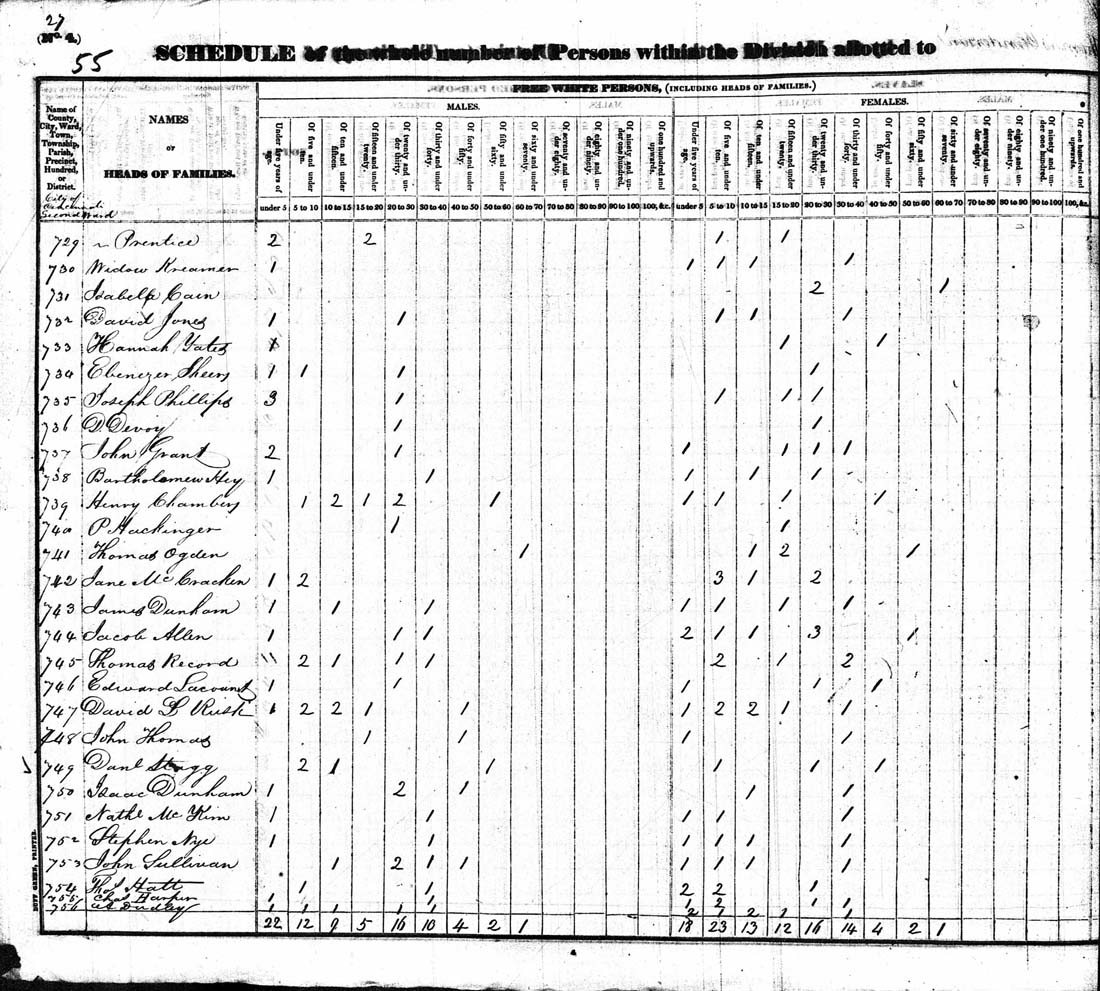 27
(No. 4.)
55
SCHEDULE of the whole number of Persons within the Division allotted to
FREE WHITE PERSONS, (INCLUDING HEADS OF FAMILIES.)
MALES. FEMALES.
Name of County, City, Ward, Town, Township, Parish, Precinct, Hundred, or District.
City of
Second Ward
NAMES
OF
HEADS OF FAMILIES.
Under five years of age. Of five and under ten. Of ten and under fifteen. Of fifteen and under twenty. Of twenty and under thirty. Of thirty and under forty. Of forty and under fifty. Of fifty and under sixty. Of sixty and under seventy. Of seventy and under eighty. Of eighty and under ninety. Of ninety and under one hundred. Of one hundred and upwards. Under five years of age. Of five and under ten. Of ten and under fifteen. Of fifteen and under twenty. Of twenty and under thirty. Of thirty and under forty. Of forty and under fifty. Of fifty and under sixty. Of sixty and under seventy. Of seventy and under eighty. Of eighty and under ninety. Of ninety and under one hundred. Of one hundred and upwards.
under 5 5 to 10 10 to 15 15 to 20 20 to 30 30 to 40 40 to 50 50 to 60 60 to 70 70 to 80 80 to 90 90 to 100 100, &c. under 5 5 to 10 10 to 15 15 to 20 20 to 30 30 to 40 40 to 50 50 to 60 60 to 70 70 to 80 80 to 90 90 to 100 100, &c.
729 Prentice 2 2 1 1
730 Widow Kreamer 1 1 1 1 1
731 Isabella Cain 2 1
732 David Jones 1 1 1 1 1
733 Hannah Yates 1 1 1
734 Ebenezer Sheers 1 1 1 1
735 Joseph Phillips 3 1 1 1 1
736 D. Devoy 1 1
737 John Grant 2 1 1 1 1 1
738 Bartholomew Hey 1 1 1 1 1
739 Henry Chambers 1 2 1 2 1 1 1 1 1
740 P Hackinger 1 1
741 Thomas Ogden 1 1 2 1
742 Jane McCracken 1 2 3 1 2
743 James Dunham 1 1 1 1 1 1 1
744 Jacob Allen 1 1 1 2 1 1 3 1
745 Thomas Record 11 2 1 1 1 2 1 2
746 Edward Lacount 1 1 1 1 1
747 David L Rusk 1 2 2 1 1 1 2 2 1 1
748 John Thomas 1 1 1 1
749 Danl Stogg 2 1 1 1 1 1
750 Isaac Dunham 1 2 1 1 1
751 Nathl McKim 1 1 1 1 1
752 Stephen Nye 1 1 1 1 1 1
753 John Sullivan 1 2 1 1 1 1 1 1
754 Thos Hatt 1 1 2 2 1
755 Chas Harper 1 1 1 2 1 1
756 1 1 1 1 1 2 1 2 1 1
22 12 9 5 16 10 4 2 1 18 23 13 12 16 14 4 2 1
DUFF GREEN, PRINTER.